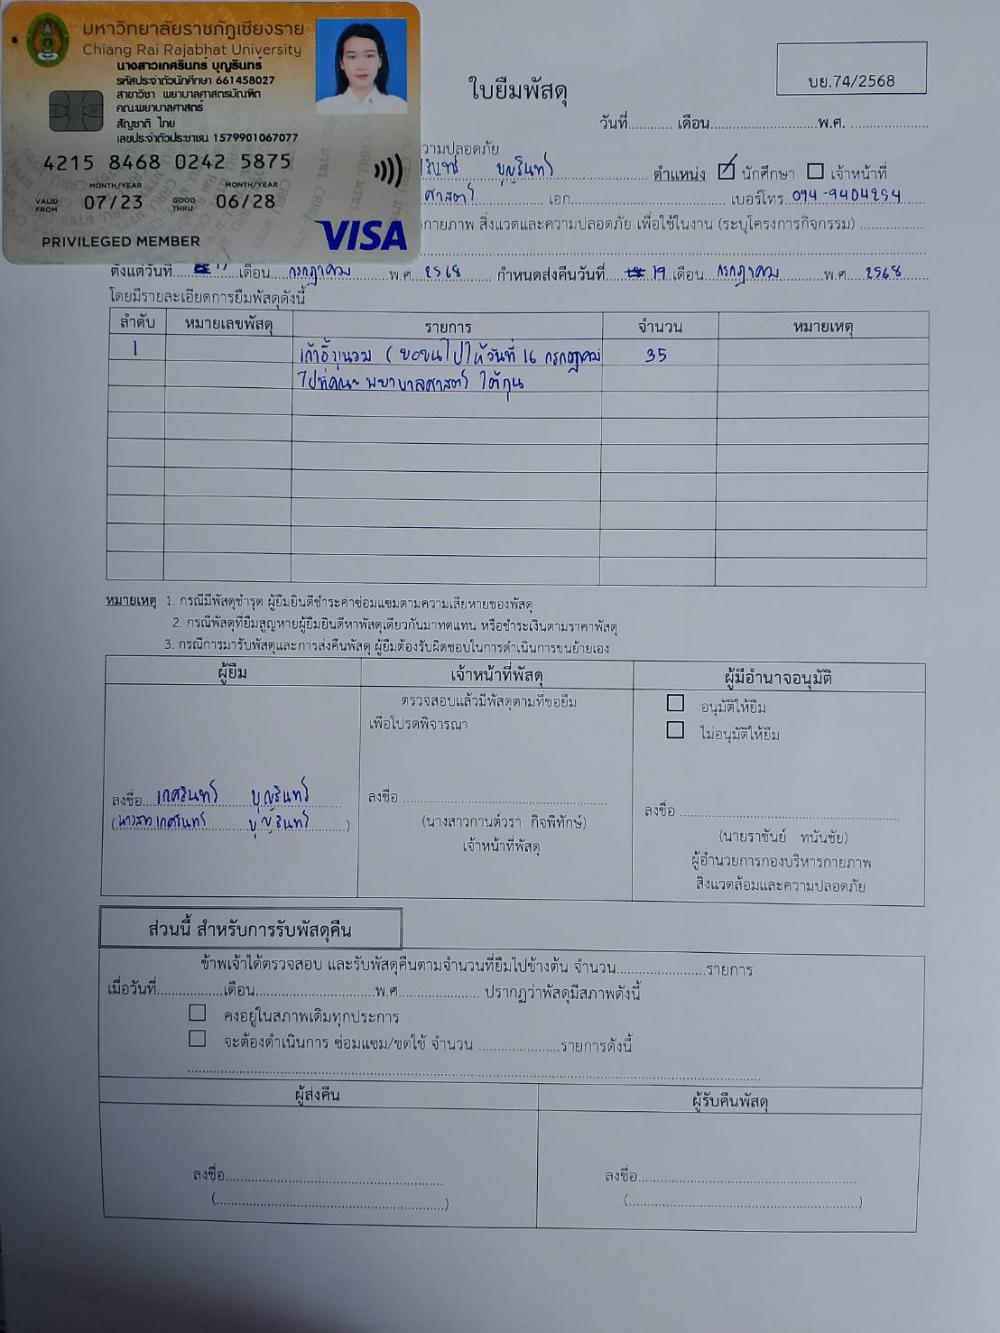 มหาวิทยาลัยราชภัฏเชียงราย
Chiang Rai Rajabhat University
นางสาวเกศรินทร์ บุญรินทร์
รหัสประจำตัวนักศึกษา 661458027
สาขาวิชา พยาบาลศาสตรบัณฑิต
คณะพยาบาลศาสตร์
สัญชาติ ไทย
เลขประจำตัวประชาชน 1579901067077
4215 8468 0242 5875
MONTH/YEAR MONTH/YEAR
VALID FROM 07/23 GOOD THRU 06/28
PRIVILEGED MEMBER VISA
บย.74/2568
ใบยืมพัสดุ
วันที่........... เดือน..............................พ.ศ. ...................
วามปลอดภัย
รินทร์ บุญรินทร์ ตำแหน่ง ☑ นักศึกษา ☐ เจ้าหน้าที่
ศาสตร์ เอก..............................เบอร์โทร 094-9404254
กายภาพ สิ่งแวดและความปลอดภัย เพื่อใช้ในงาน (ระบุโครงการกิจกรรม) ................
ตั้งแต่วันที่ 17 เดือน กรกฎาคม พ.ศ. 2568 กำหนดส่งคืนวันที่ 19 เดือน กรกฎาคม พ.ศ. 2568
โดยมีรายละเอียดการยืมพัสดุดังนี้
ลำดับ หมายเลขพัสดุ รายการ จำนวน หมายเหตุ
1 เก้าอี้บุนวม (ขอขนไปให้วันที่ 16 กรกฎาคม 35
ไปที่คณะพยาบาลศาสตร์ ใต้ถุน
หมายเหตุ 1. กรณีมีพัสดุชำรุด ผู้ยืมยินดีชำระค่าซ่อมแซมตามความเสียหายของพัสดุ
2. กรณีพัสดุที่ยืมสูญหายผู้ยืมยินดีหาพัสดุเดียวกันมาทดแทน หรือชำระเงินตามราคาพัสดุ
3. กรณีการมารับพัสดุและการส่งคืนพัสดุ ผู้ยืมต้องรับผิดชอบในการดำเนินการขนย้ายเอง
ผู้ยืม เจ้าหน้าที่พัสดุ ผู้มีอำนาจอนุมัติ
ตรวจสอบแล้วมีพัสดุตามที่ขอยืม
เพื่อโปรดพิจารณา
☐ อนุมัติให้ยืม
☐ ไม่อนุมัติให้ยืม
ลงชื่อ เกศรินทร์ บุญรินทร์
(นางสาวเกศรินทร์ บุญรินทร์)
ลงชื่อ ........................................
(นางสาวกานต์วรา กิจพิทักษ์)
เจ้าหน้าที่พัสดุ
ลงชื่อ ........................................
(นายราชันย์ ทนันชัย)
ผู้อำนวยการกองบริหารกายภาพ
สิ่งแวดล้อมและความปลอดภัย
ส่วนนี้ สำหรับการรับพัสดุคืน
ข้าพเจ้าได้ตรวจสอบ และรับพัสดุคืนตามจำนวนที่ยืมไปข้างต้น จำนวน....................รายการ
เมื่อวันที่................เดือน..............................พ.ศ.................... ปรากฏว่าพัสดุมีสภาพดังนี้
☐ คงอยู่ในสภาพเดิมทุกประการ
☐ จะต้องดำเนินการ ซ่อมแซม/ชดใช้ จำนวน ....................รายการดังนี้
ผู้ส่งคืน ผู้รับคืนพัสดุ
ลงชื่อ.................................................. ลงชื่อ..................................................
(..................................................) (..................................................)